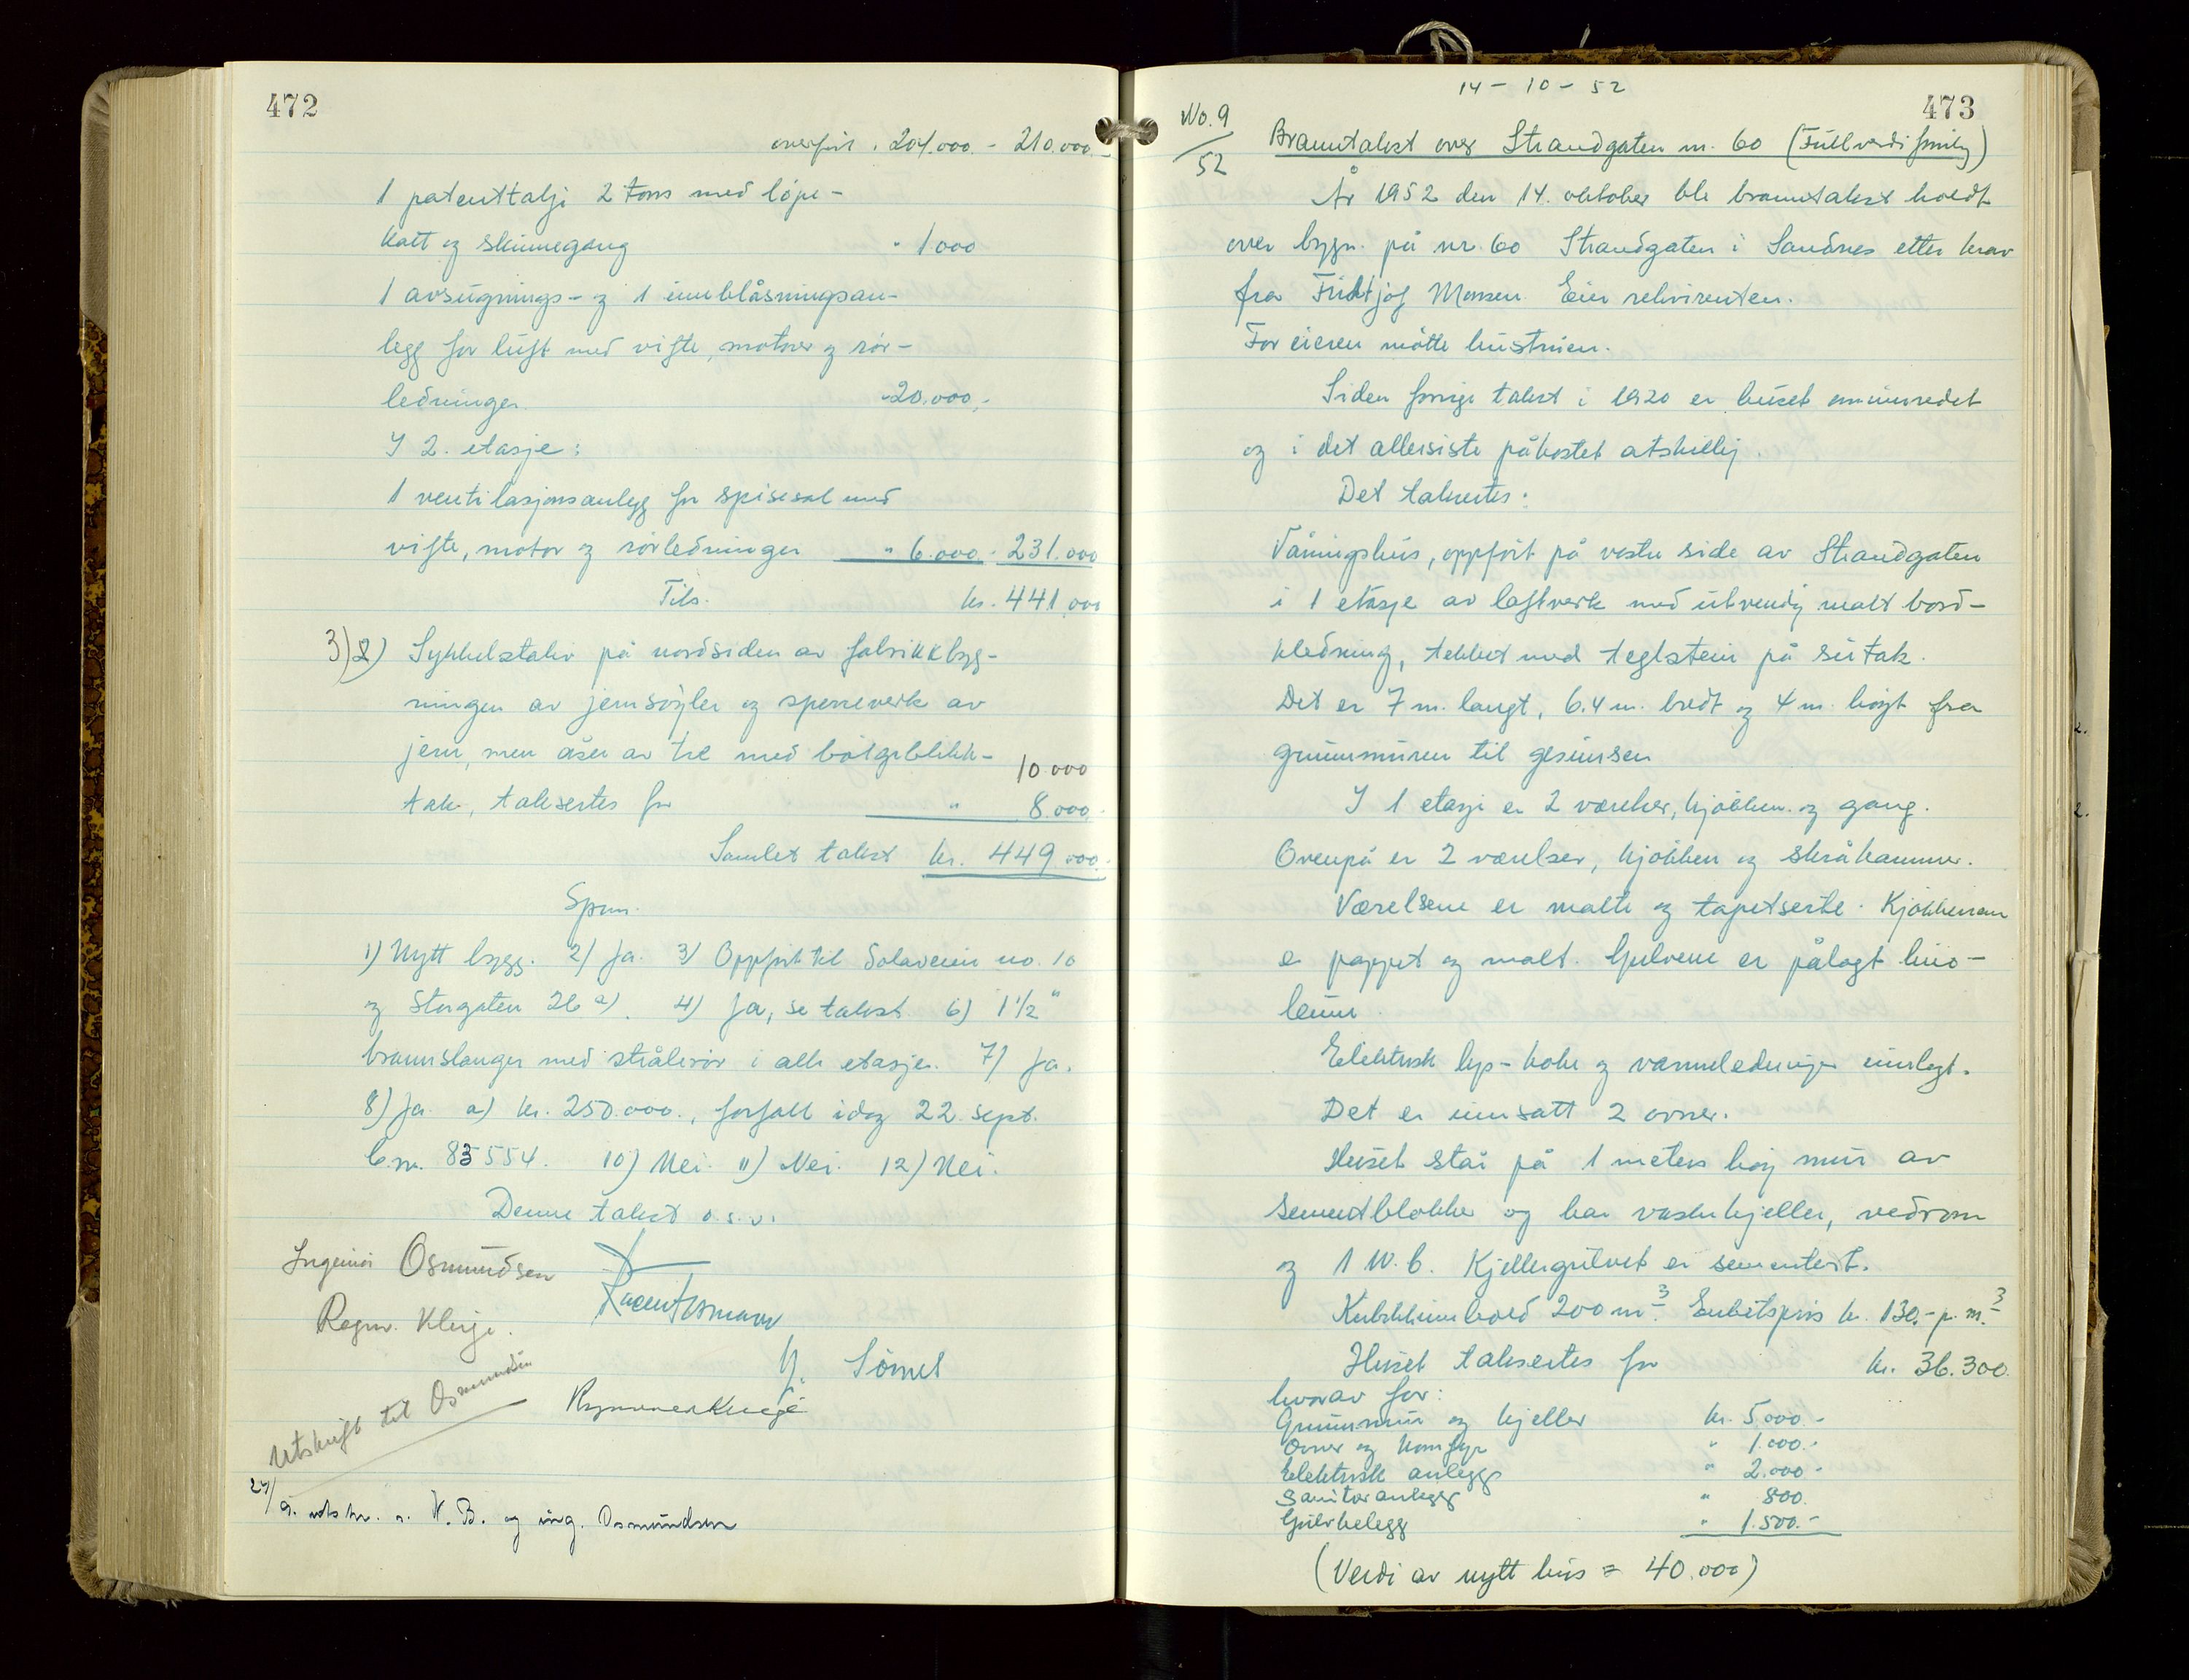 472
overført kr. 204.000.- 210.000.-
1 patenttalje 2 tons med løpe-
katt og skinnegang " 1.000
1 avsugnings- og 1 innblåsningsan-
legg for luft med vifte, motorer og rør-
ledninger " 20.000,-
I 2. etasje:
1 ventilasjonsanlegg for spisesal med
vifte, motor og rørledninger " 6.000.- 231.000
Tils. kr. 441.000
3) 2) Sykkelstativ på nordsiden av fabrikkbyg-
ningen av jernsøyler og sperreverk av
jern, men åser av tre med bølgeblikk-
10.000
tak, taksertes for " 8.000.-
Samlet takst kr. 449.000.-
Spm.
1) Nytt bygg. 2) Ja. 3) Oppført til Solaveien no. 10
og Storgaten 26 a). 4) Ja, se takst 6) 1 1/2"
brannslanger med strålerør i alle etasjer. 7) Ja.
8) Ja. a) kr. 250.000., forfall idag 22. sept.
C.nr. 83554. 10) Nei. 11) Nei. 12) Nei.
Denne takst o.s.v.
Ingeniør Osmundsen
Ragnv. Kleije.
Y. Sömel
Utskrift til Osmundsen
24/9. utskr. s. N.B. og ing. Osmundsen
14-10-52
473
No. 9/52
Branntakst over Strandgaten nr. 60 (Fullverdiforsikring)
År 1952 den 14. oktober ble branntakst holdt
over bygn. på nr. 60 Strandgaten i Sandnes etter krav
fra Fridtjof Monsen. Eier rekvirenten.
For eieren møtte hustruen.
Siden forrige takst i 1920 er huset ominnredet
og i det allersiste påkostet atskillig.
Det takseertes:
Våningshus, oppført på vestre side av Strandgaten
i 1 etasje av laftverk med utvendig malt bord-
kledning, tekket med teglstein på sutak.
Det er 7 m. langt, 6.4 m. bredt og 4 m. høyt fra
grunnmuren til gesimsen
I 1 etasje er 2 værelser, kjøkken og gang.
Ovenpå er 2 værelser, kjøkken og skråkammer.
Værelsene er malte og tapetserte. Kjøkkenene
er pappet og malt. Gulvene er pålagt lino-
leum.
Elektrisk lys- koke og varmeledninger innlagt.
Det er innsatt 2 ovner.
Huset står på 1 meters høy mur av
sementblokker og har vaskekjeller, vedrom
og 1 W.C. Kjellergulvet er sementert.
Kubikkinnhold 200 m³. Enhetspris kr. 130,- p. m³
Huset taksertes for kr. 36.300.
hvorav for:
Grunnmur og kjeller kr. 5.000.-
Ovner og komfyr " 1.000.-
Elektrisk anlegg " 2.000.-
Sanitæranlegg " 800.
Gulvbelegg " 1.500.-
(Verdi av nytt hus = 40.000)